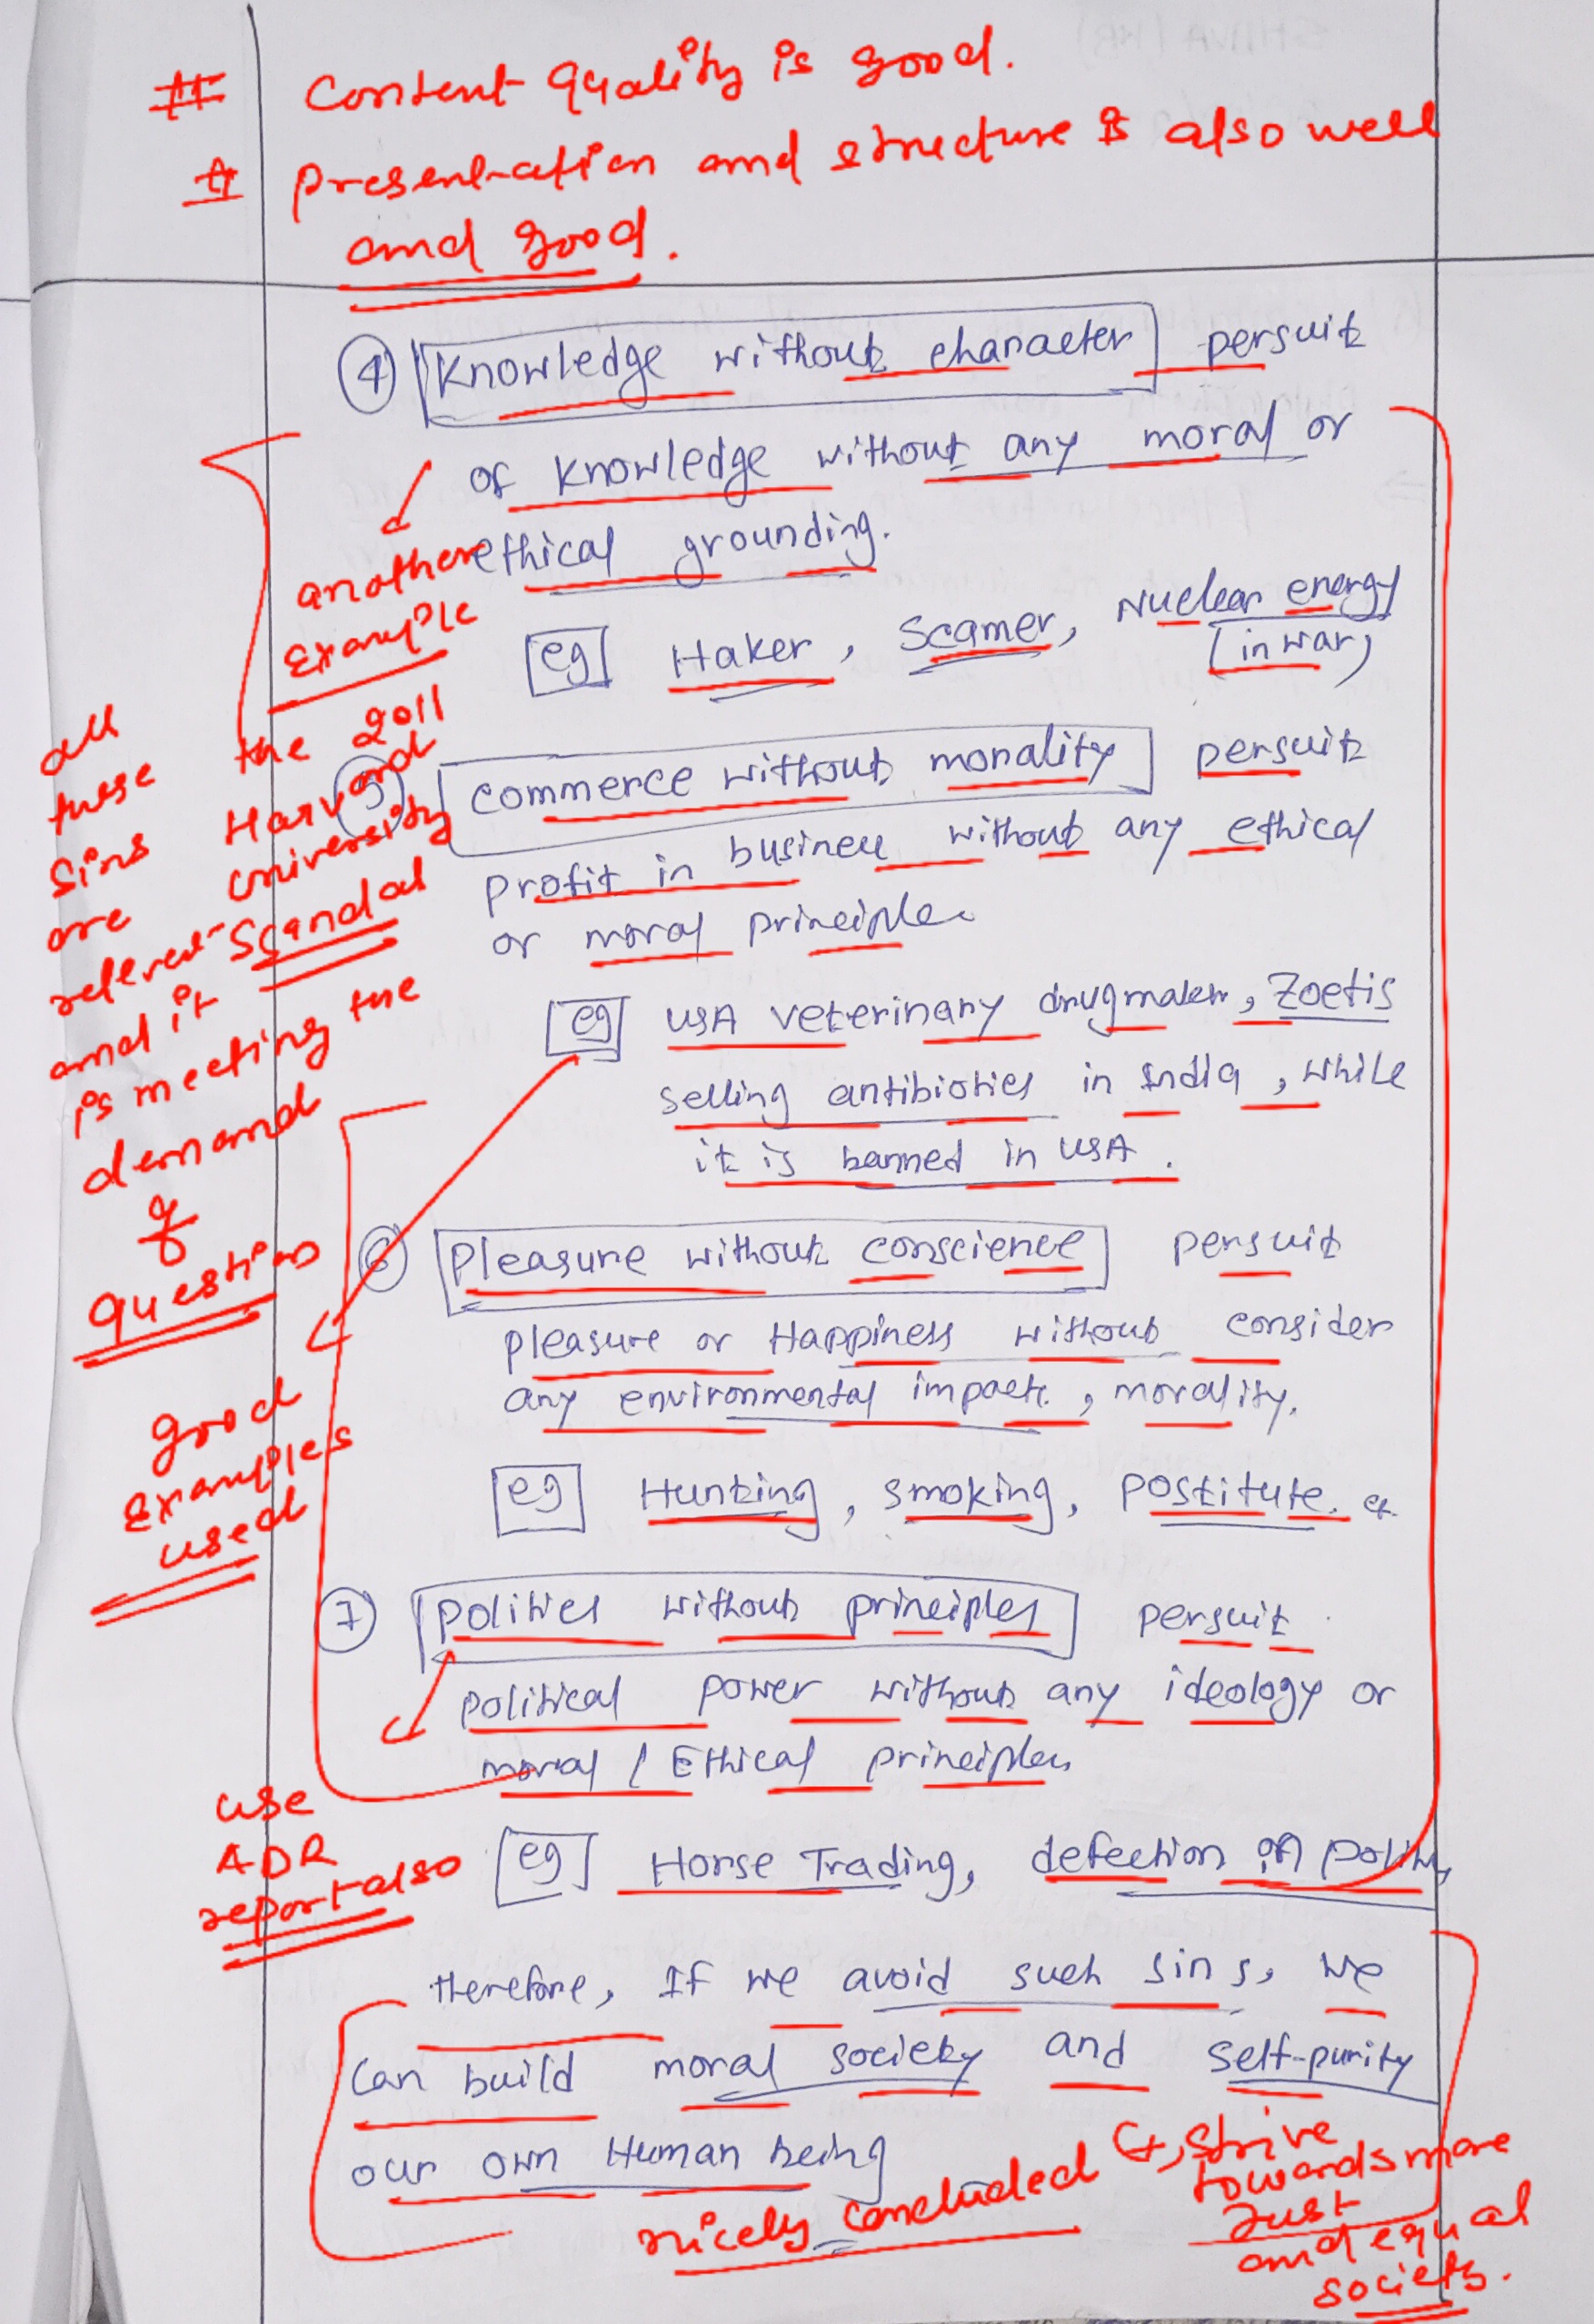 # Content quality is good.
# Presentation and structure is also well
and good.
④ Knowledge without character persuit
of knowledge without any moral or
ethical grounding.
eg Haker, Scamer, Nuclear energy
(in war)
another
Example
the 2011
Harvard
University
Scandal
all
these
sins
are
relevent
and it
is meeting the
demand
of
question
⑤ Commerce without morality persuit
profit in business without any ethical
or moral principles
eg USA veterinary drugmaker, Zoetis
selling antibiotics in India, while
it is banned in USA.
⑥ Pleasure without conscience persuit
pleasure or Happiness without consider
any environmental impact, morality.
eg Hunting, smoking, Postitute. et
good
Examples
used
⑦ Politics without principles persuit
political power without any ideology or
moral / Ethical principles
use
ADR
report also
eg Horse Trading, defection of
therefore, If we avoid such sins, we
can build moral society and self-purity
our own Human being
nicely concluded
strive
towards more
Just
and equal
society.